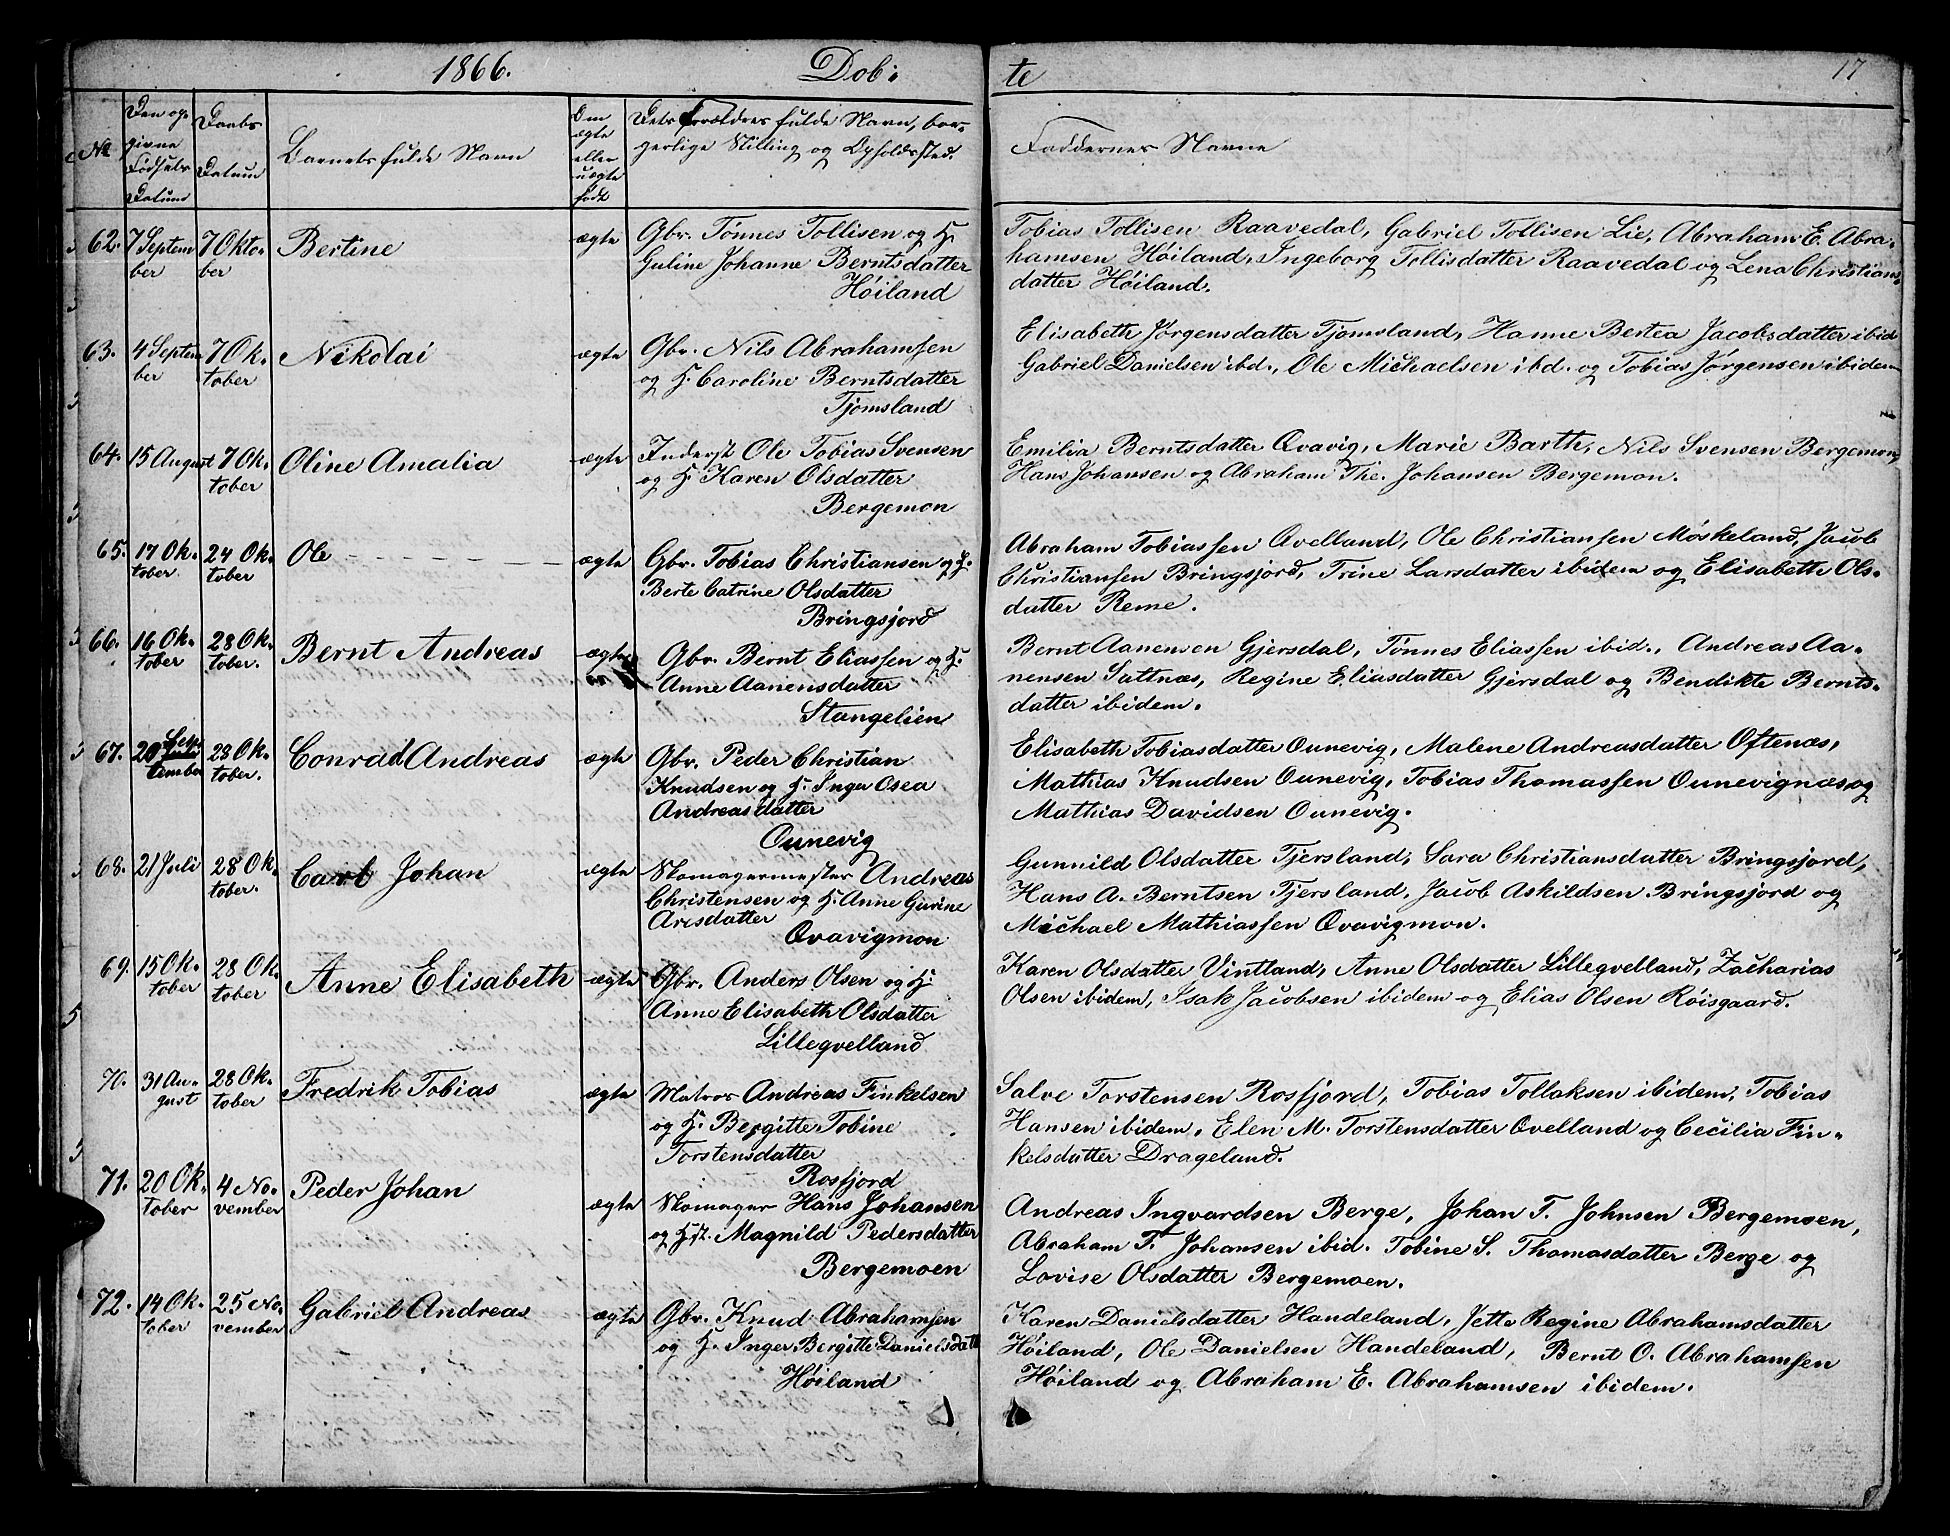 1866. Døb- te 17
No
Den op-
givne
Fødsels
Datum
Daabs
Datum
Barnets fulde Navn
Om
ægte
eller
uægte
født
Dets Forældres fulde Navn, bor-
gerlige Stilling og Opholdssted.
Faddernes Navne
62. 7 Septem 7 Okto- Bertine ægte Gbr. Tønnes Tollisen og H.
ber ber Guline Johanne Berntsdatter
Høiland
Tobias Tollisen Raavedal, Gabriel Tollisen Lie, Abraham E. Abra-
hamsen Høiland, Ingeborg Tollisdatter Raavedal og Lena Christians-
datter Høiland.
63. 4 Septem 7 Ok- Nikolai ægte Gbr. Nils Abrahamsen
ber tober og H. Caroline Berntsdatter
Tjomsland
Elisabeth Jørgensdatter Tjomsland, Hanne Bertea Jacobsdatter ibid
Gabriel Danielsen ibd., Ole Michaelsen ibd. og Tobias Jørgensen ibidem
64. 15 August 7 Ok- Oline Amalia ægte Inderst Ole Tobias Svensen
tober og H. Karen Olsdatter
Bergemon
Emilia Berntsdatter Qvavig, Marie Barth, Nils Svensen Bergemon,
Hans Johansen og Abraham The. Johansen Bergemon.
65. 17 Ok- 24 Ok- Ole ægte Gbr. Tobias Christiansen og H.
tober. tober Berte Catrine Olsdatter
Bringsjord
Abraham Tobiassen Qvelland, Ole Christiansen Møskeland, Jacob
Christiansen Bringsjord, Trine Larsdatter ibidem og Elisabeth Ols-
datter Reme.
66. 16 Ok- 28 Ok- Bernt Andreas ægte Gbr. Bernt Eliassen og H.
tober tober. Anne Aanensdatter
Stangelien
Bernt Aanensen Gjersdal, Tønnes Eliassen ibid., Andreas Aa-
nensen Sattnæs, Regine Eliasdatter Gjersdal og Bendikte Bernts-
datter ibidem.
67. 20 Sep- 28 Ok- Conrad Andreas ægte Gbr. Peder Christian
tember tober. Knudsen og H. Inger Osea
Andreasdatter
Ounevig
Elisabeth Tobiasdatter Ounevig, Malene Andreasdatter Oftenæs,
Mathias Knudsen Ounevig, Tobias Thomassen Ounevignæs og
Mathias Davidsen Ounevig.
68. 21 Juli 28 Ok- Carl Johan ægte Skomagermester Andreas
tober. Christensen og H. Anne Gurine
Arisdatter
Qvavigmon
Gunnild Olsdatter Tjersland, Sara Christiansdatter Bringsjord,
Hans A. Berntsen Tjersland, Jacob Askildsen Bringsjord og
Michael Mathiassen Qvavigmon.
69. 15 Ok- 28 Ok- Anne Elisabeth ægte Gbr. Anders Olsen og H.
tober tober Anne Elisabeth Olsdatter
Lillegvelland
Karen Olsdatter Vintland, Anne Olsdatter Lillegvelland, Zacharias
Olsen ibidem, Isak Jacobsen ibidem og Elias Olsen Røisgaard.
70. 31 Au- 28 Ok- Fredrik Tobias ægte Matros Andreas Finkelsen
gust tober og H. Bergitte Tobine
Torstensdatter
Rosfjord
Salve Torstensen Rosfjord, Tobias Tollaksen ibidem, Tobias
Hansen ibidem, Elen M. Torstensdatter Qvelland og Cecilia Fin-
kelsdatter Drageland.
71. 20 Ok- 4 No- Peder Johan ægte Skomager Hans Johansen
tober vember og Hst. Magnild Pedersdatter
Bergemoen
Andreas Ingvardsen Berge, Johan T. Johnsen Bergemoen,
Abraham T. Johansen ibid. Tobine S. Thomasdatter Berge og
Lovise Olsdatter Bergemoen.
72. 14 Ok- 25 No- Gabriel Andreas ægte Gbr. Knud Abrahamsen
tober vember og H. Inger Bergitte Danielsdatt
Høiland
Karen Danielsdatter Handeland, Jette Regine Abrahamsdatter
Høiland, Ole Danielsen Handeland, Bernt O. Abrahamsen
Høiland og Abraham E. Abrahamsen ibidem.